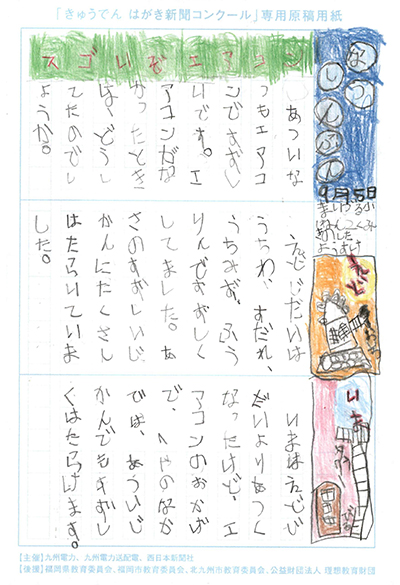 「きゅうでん はがき新聞コンクール」専用原稿用紙
なつしんぶん
9月5日
まいづる小
スゴいぞエアコン
あついな
つもエアコ
ンですずし
いです。エ
アコンがな
かったとき
は、どうし
てたのでし
ょうか。
えどじだいは
うちわ、すだれ、
うちみず、ふう
りんですずしく
してました。あ
さのすずしいじ
かんにたくさん
はたらいていま
した。
えど
いまはえどじ
だいよりあつく
なったけど、エ
アコンのおかげ
で、へやのなか
では、あついじ
かんでもすずし
くはたらけます。
いま
【主催】九州電力、九州電力送配電、西日本新聞社
【後援】福岡県教育委員会、福岡市教育委員会、北九州市教育委員会、公益財団法人 理想教育財団